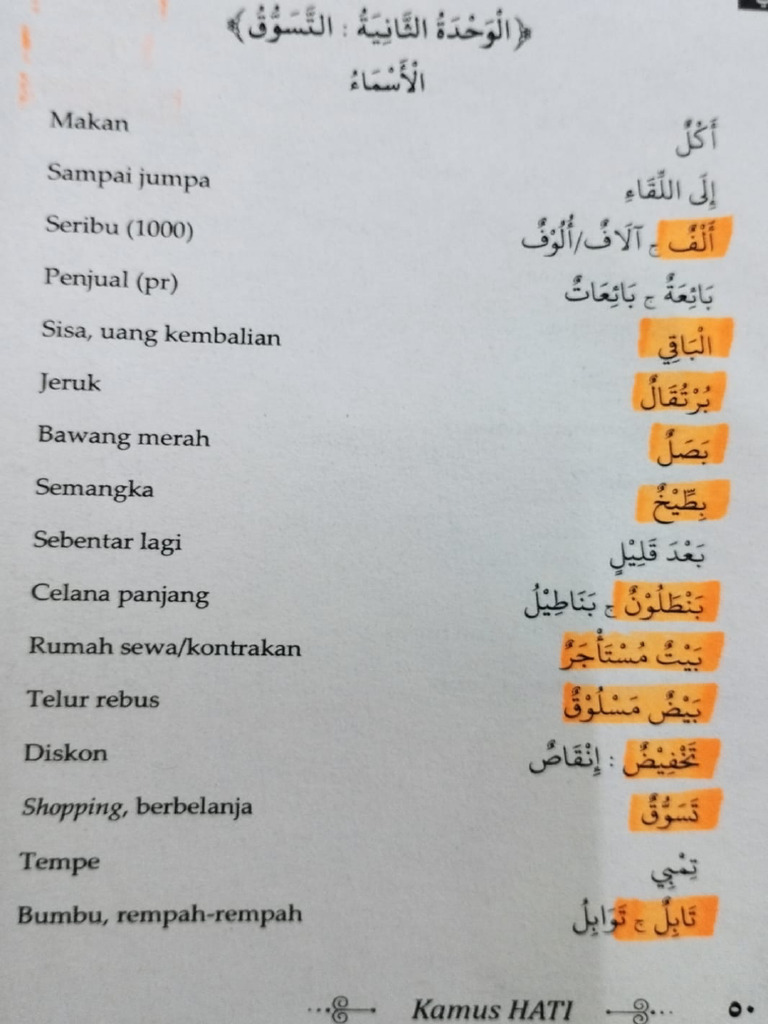 ﴿الْوَحْدَةُ الثَّانِيَةُ : التَّسَوُّقُ﴾
الْأَسْمَاءُ
Makan أَكْلٌ
Sampai jumpa إِلَى اللِّقَاءِ
Seribu (1000) أَلْفٌ ج آلَافٌ/أُلُوْفٌ
Penjual (pr) بَائِعَةٌ ج بَائِعَاتٌ
Sisa, uang kembalian الْبَاقِي
Jeruk بُرْتُقَالٌ
Bawang merah بَصَلٌ
Semangka بِطِّيْخٌ
Sebentar lagi بَعْدَ قَلِيْلٍ
Celana panjang بَنْطَلُوْنٌ ج بَنَاطِيْلُ
Rumah sewa/kontrakan بَيْتٌ مُسْتَأْجَرٌ
Telur rebus بَيْضٌ مَسْلُوْقٌ
Diskon تَخْفِيْضٌ : إِنْقَاصٌ
Shopping, berbelanja تَسَوُّقٌ
Tempe تِمْبِي
Bumbu, rempah-rempah تَابِلٌ ج تَوَابِلُ
Kamus HATI ٥٠